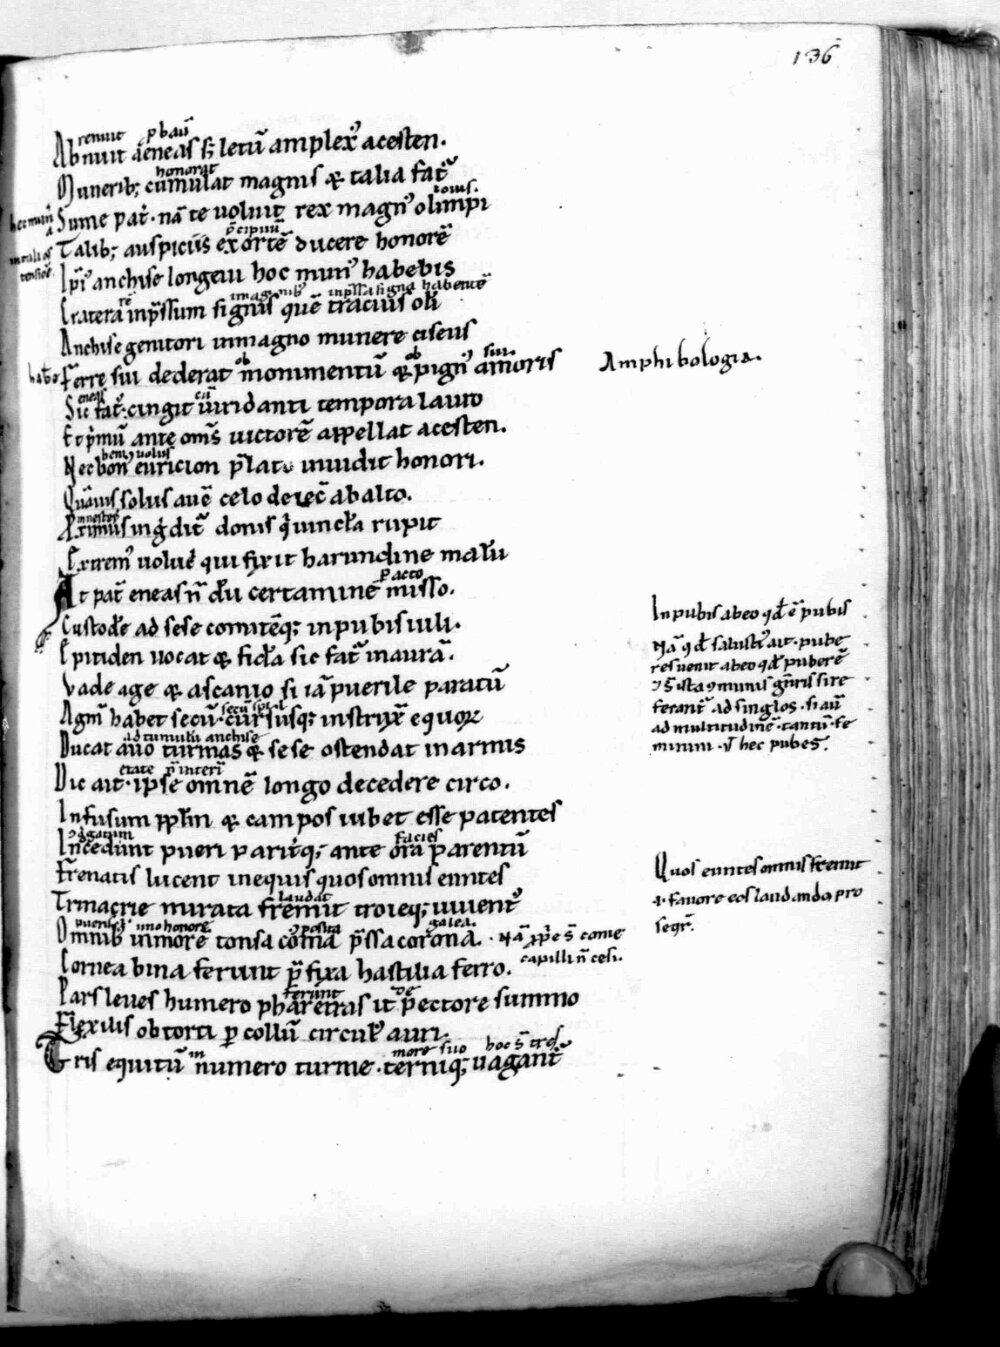 136
renuit p baū
Abnuit aeneas sʒ letū amplexꝰ acesten.
honorat
Munerib; cumulat magnis & talia fat᷑
Sume pat᷑. nā te uoluit rex magnꝰ olimpi
p̄cipuū
Talib; auspiciis exortē ducere honorē
Ipsiꝰ anchise longeui hoc munꝰ habebis
imaginibꝰ inp̄ssa signa habente
Cratera inp̄ssum signis quē tracius oli
Anchise genitori inmagno munere ciseus
ob ob sui.
Ferre sui dederat monimentū & pignꝰ amoris
Amphibologia.
eneas
Sic fat᷑. cingit uiridanti tempora lauro
Et p̄mū ante om̄s uictorē appellat acesten.
beniuolus
Nec bonꝰ euricion p̄lato inuidit honori.
Quāuis solus auē celo deiec̄ ab alto.
mnesteus
Proximus ingdit᷑ donis q̄ uincl̄a rupit
Extremꝰ uolucꝰ qui fixit harundine malū
pacto
At pat᷑ eneas n̄ dū certamine misso.
Custodē ad sese comitēq; inpubis iuli.
Epitiden uocat & fidā sic fat᷑ in aurā.
Vade age & ascanio si iā puerile paratū
Agmꝰ habet secū. cursusq; instruxꝭ equoꝝ
ad tumulū anchise
Ducat auo turmas & sese ostendat in armis
Dic ait. ipse omnē longo decedere circo.
Infusum pp̄lm & campos iubet esse patentes
facies
Incedunt pueri paritq; ante ora parentū
Frenatis lucent inequis quos omnis euntes
laudat
Trinacrie mirata fremit troieq; iuuentꝰ
galea.
Omnib; inmore tonsa coma p̄ssa corona. Nā xp̄e s̄ come
capilli n̄ cesi.
Cornea bina ferunt p̄fixa hastilia ferro.
ferunt de
Pars leues humero pharetras it pectore summo
Flexilis obtorti p collū circul̄ auri.
in more suo hoc ē tres
Tris equitū numero turme. terniq; uagant᷑
Inpubis abeo qđ ē pubis
Nā qđ salusti᷑ ait. pube
res uenit abeo qđ puberē
ferant᷑ ad singlos. si aū
ad multitudinē. tantū fe
minini. ut hec pubes.
Quos euntes omnis fremit
.i. fauore eos laudando pro
seqr̄.